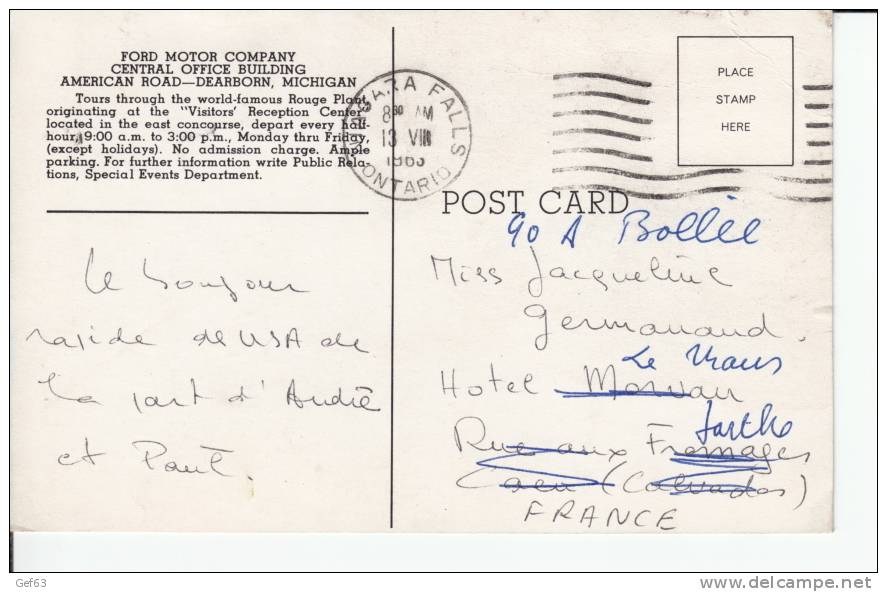 FORD MOTOR COMPANY
CENTRAL OFFICE BUILDING
AMERICAN ROAD—DEARBORN, MICHIGAN
Tours through the world-famous Rouge Plant,
originating at the "Visitors' Reception Center"
located in the east concourse, depart every half-
hour, 9:00 a.m. to 3:00 p.m., Monday thru Friday,
(except holidays). No admission charge. Ample
parking. For further information write Public Rela-
tions, Special Events Department.
NIAGARA FALLS
8 30 AM
13 VIII
1963
ONTARIO
PLACE
STAMP
HERE
POST CARD
Le bonjour
rapide de USA de
la part d'André
et Paul.
90 A Bollée
Miss Jacqueline
Germanaud
Le Mans
Hotel Morvan
Sarthe
Rue aux Fromages
Caen (Calvados)
FRANCE
Gef63
delcampe.net